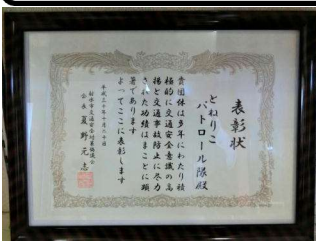 表彰状
とねりこ
パトロール隊殿
貴団体は多年にわたり積
極的に交通安全意識の高
揚と交通事故防止に尽力
された功績はまことに顕
著であります
よってここに表彰します
平成三十年十月二十日
射水市交通安全対策協議会
会長 夏野元志